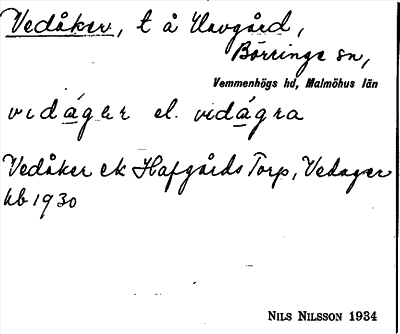 Vedåker, t å Havgård,
Börringe sn,
Vemmenhögs hd, Malmöhus län
vedágər el. vidágra
Vedåker ek Hafgårds Torp, Vedager
kb 1930
NILS NILSSON 1934